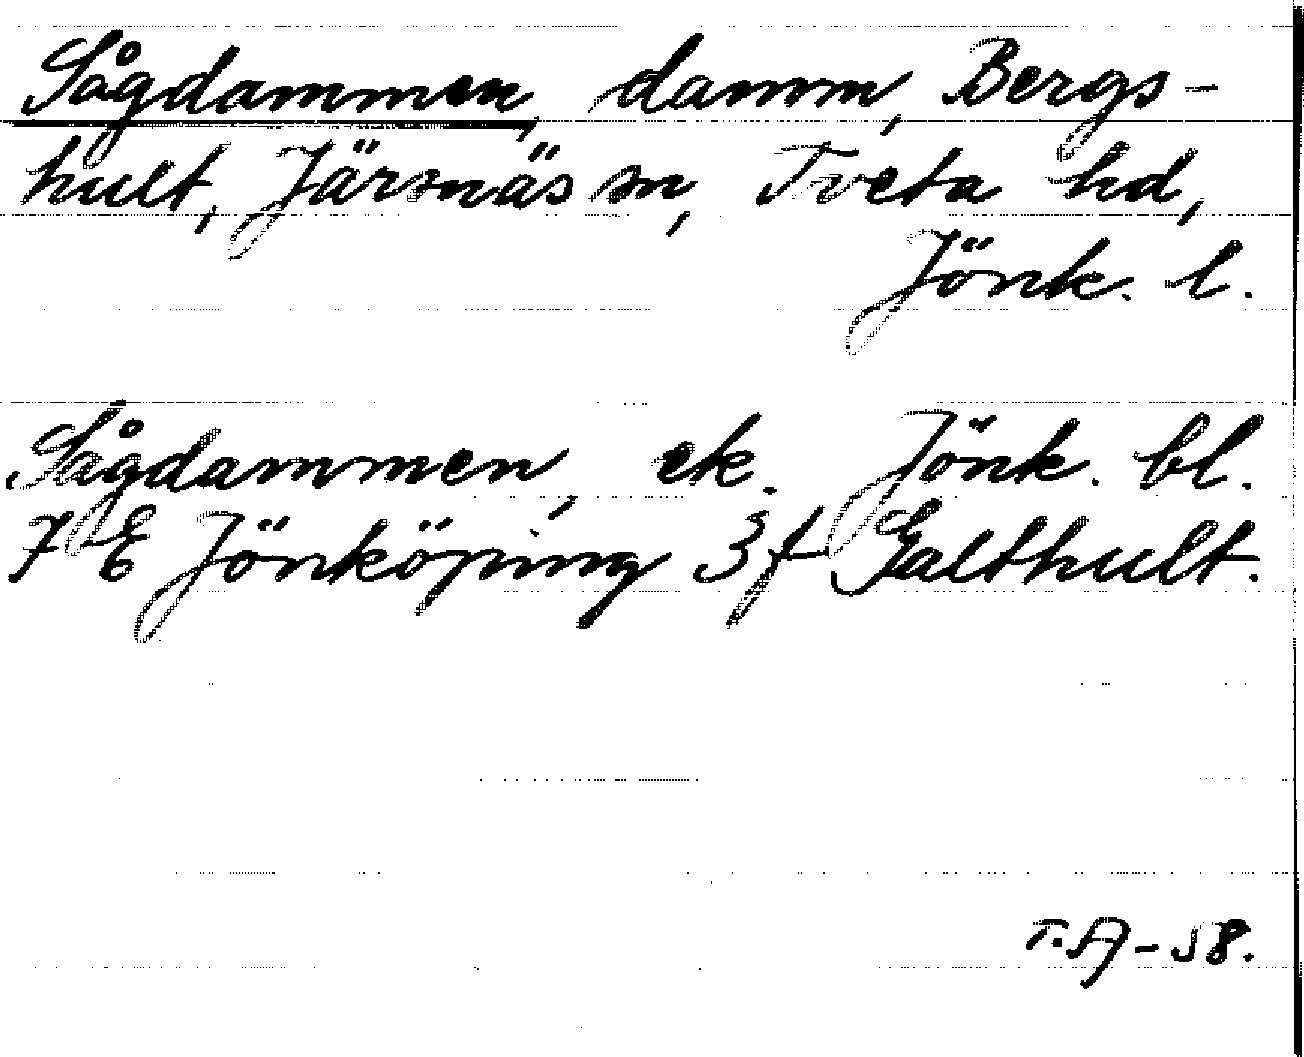 Sågdammen, damm, Bergs-
hult, Järsnäs sn, Tveta hd,
Jönk. l.
Sågdammen, ek. Jönk. bl.
7 E Jönköping 3 f Galthult.
T.A-58.